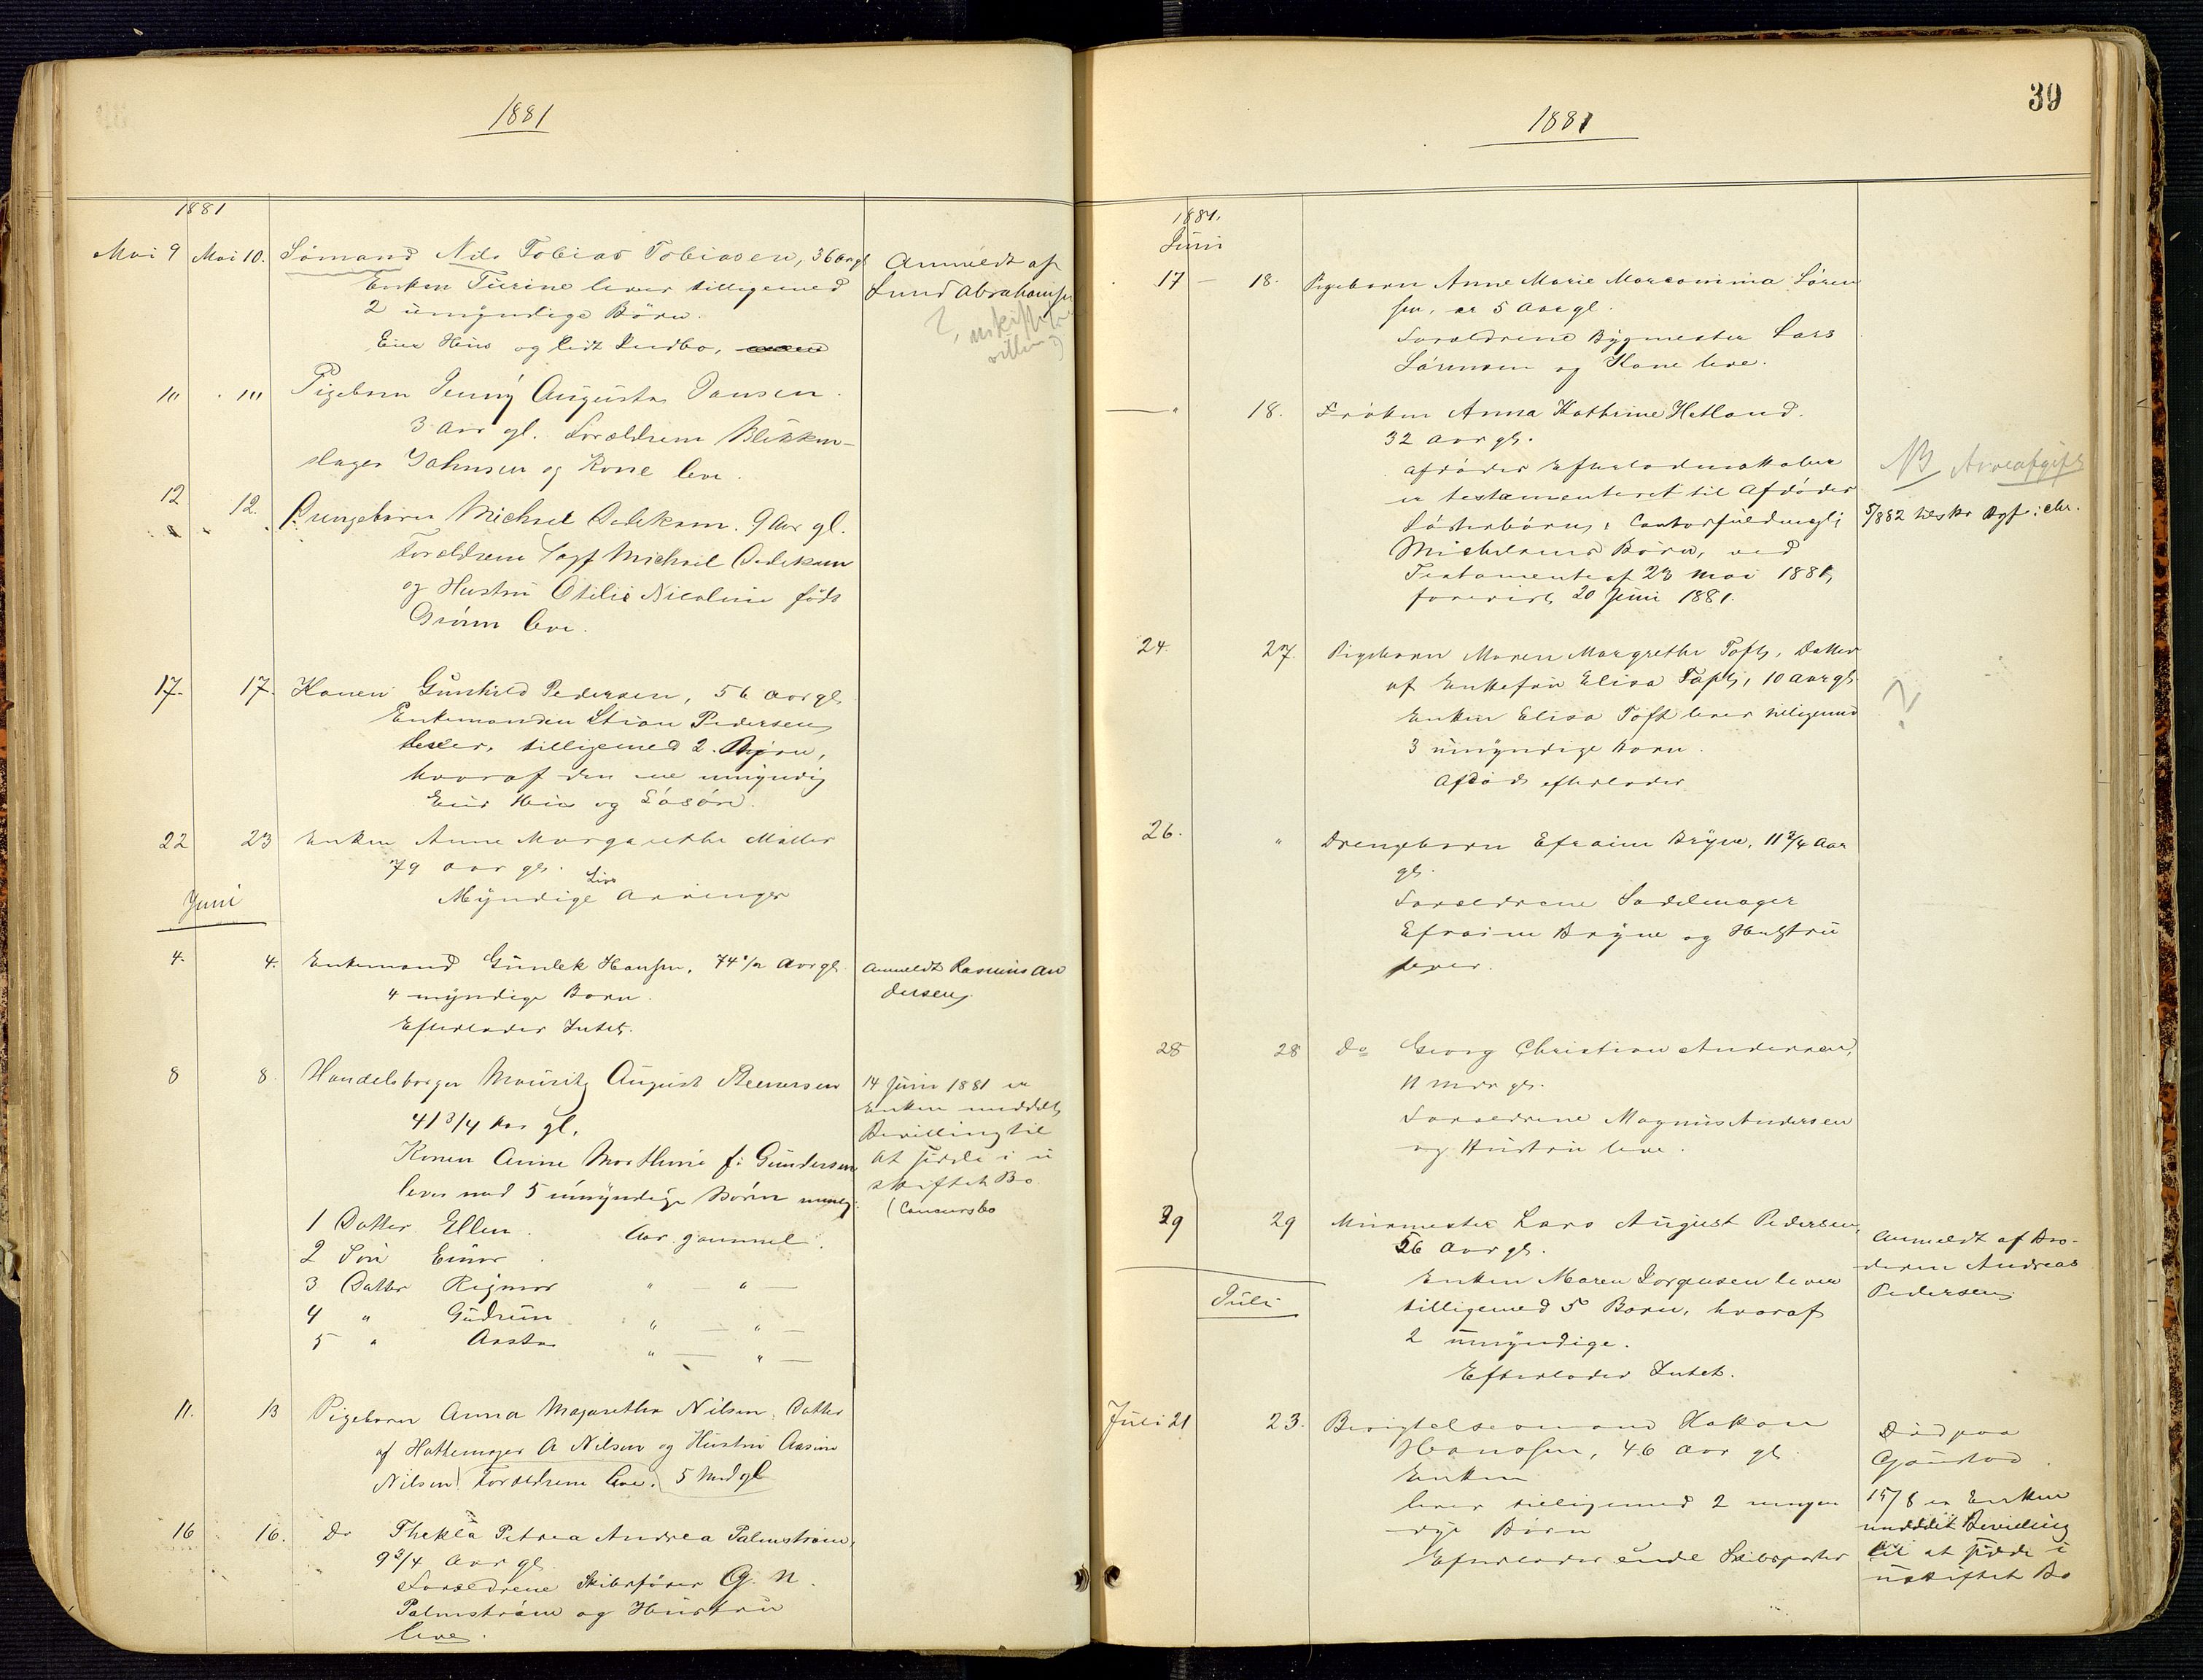 1881
1881
Mai 9 Mai 10. Sömand Nils Tobias Tobiasen, 36 Aar gl
Enken Turine lever tilligemed
2 umyndige Börn.
Eier Hus og lidt Indbo,
Anmeldt af
Lund Abrahamsen
10 10 Pigebarn Jenny Augusta Jansen.
3 Aar gl. Forældrene Blikken-
slager Johnsen og Kone leve.
12 12. Drengebarn Michael Dedekam. 9 Aar gl.
Forældrene Sagf Michael Dedekam
og Hustru Otilie Nicoline född
Grönn leve.
17. 17. Konen Gunhild Pedersen, 56 Aar gl
Enkemanden Stian Pedersen
lever, tilligemed 2 Börn,
hvoraf den ene umyndig
Eier Hus og Lösöre.
22 23 Enken Anne Margarethe Möller
79 Aar gl.
Myndige Livs Arvinger
Juni
4. 4. Enkemand Gunlek Hansen, 74 1/2 Aar gl
4 myndige Börn.
Efterlader Intet.
Anmeldt Rasmus An
dersen
8 8. Handelsborger Mouritz August Reenersen
41 3/4 Aar gl.
Konen Anne Marthine f: Gundersen
lever med 5 umyndige Börn nemlig:
1 Datter Ellen. Aar gammel.
2 Sön Einar
3 Datter Rigmor " — " —
4 " Gudrun " — " —
5 " Aasta " — " —
14 Juni 1881 er
Enken meddelt
Bevilling til
at sidde i u
skiftet Bo
(Concursbo
11. 13 Pigebarn Anna Magarethe Nilsen, Datter
af Hattemager A Nilsen og Hustru Aasine
Nilsen. Forældrene leve. 5 Mnd gl
16 16. Do Thekla Petrea Andrea Palmström,
9 3/4 Aar gl
Forældrene Skibsförer G. N.
Palmström og Hustru
leve.
39
1881
1881.
Juni
17 — 18. Pigebarn Anne Marie Marcomina Sören
sen, er 5 Aar gl.
Forældrene Bygmester Lars
Sörensen og Kone leve.
— " 18. Fröken Anna Kathrine Hetland.
32 Aar gl.
Afdödes Efterladenskaber
er testamenteret til Afdödes
Sösterbörn, Contorfuldmægtig
Michelsens Börn, ved
Testamente af 23 Mai 1881,
forevist 20 Juni 1881.
NB Arveafgift
24. 27. Pigebarn Maren Margrethe Toft, Datter
af Enkefru Elisa Toft, 10 Aar gl
Enken Elisa Toft lever tilligemed
3 umyndige Börn.
Afdöde efterlader
?
26. " Drengebarn Efraim Bryne, 11 3/4 Aar
gl.
Forældrene Sadelmager
Efraim Bryne og Hustru
lever.
28 28 Do Georg Christian Andersen,
11 Mdr gl.
Forældrene Magnus Andersen
og Hustru leve.
29 29 Murmester Lars August Pedersen,
56 Aar gl.
Enken Maren Jörgensen lever
tilligemed 5 Börn, hvoraf
2 umyndige.
Efterlader Intet.
Anmeldt af Bro-
deren Andreas
Pedersen
Juli
Juli 21 23. Bevigtelsesmand Hakon
Hansen, 46 Aar gl
Enken
lever tilligemed 2 umyn
dige Börn
Efterlader ende Skibsparter
Död paa
Gaustad.
15/8 er Enken
meddelt Bevilling
til at sidde i
uskiftet Bo